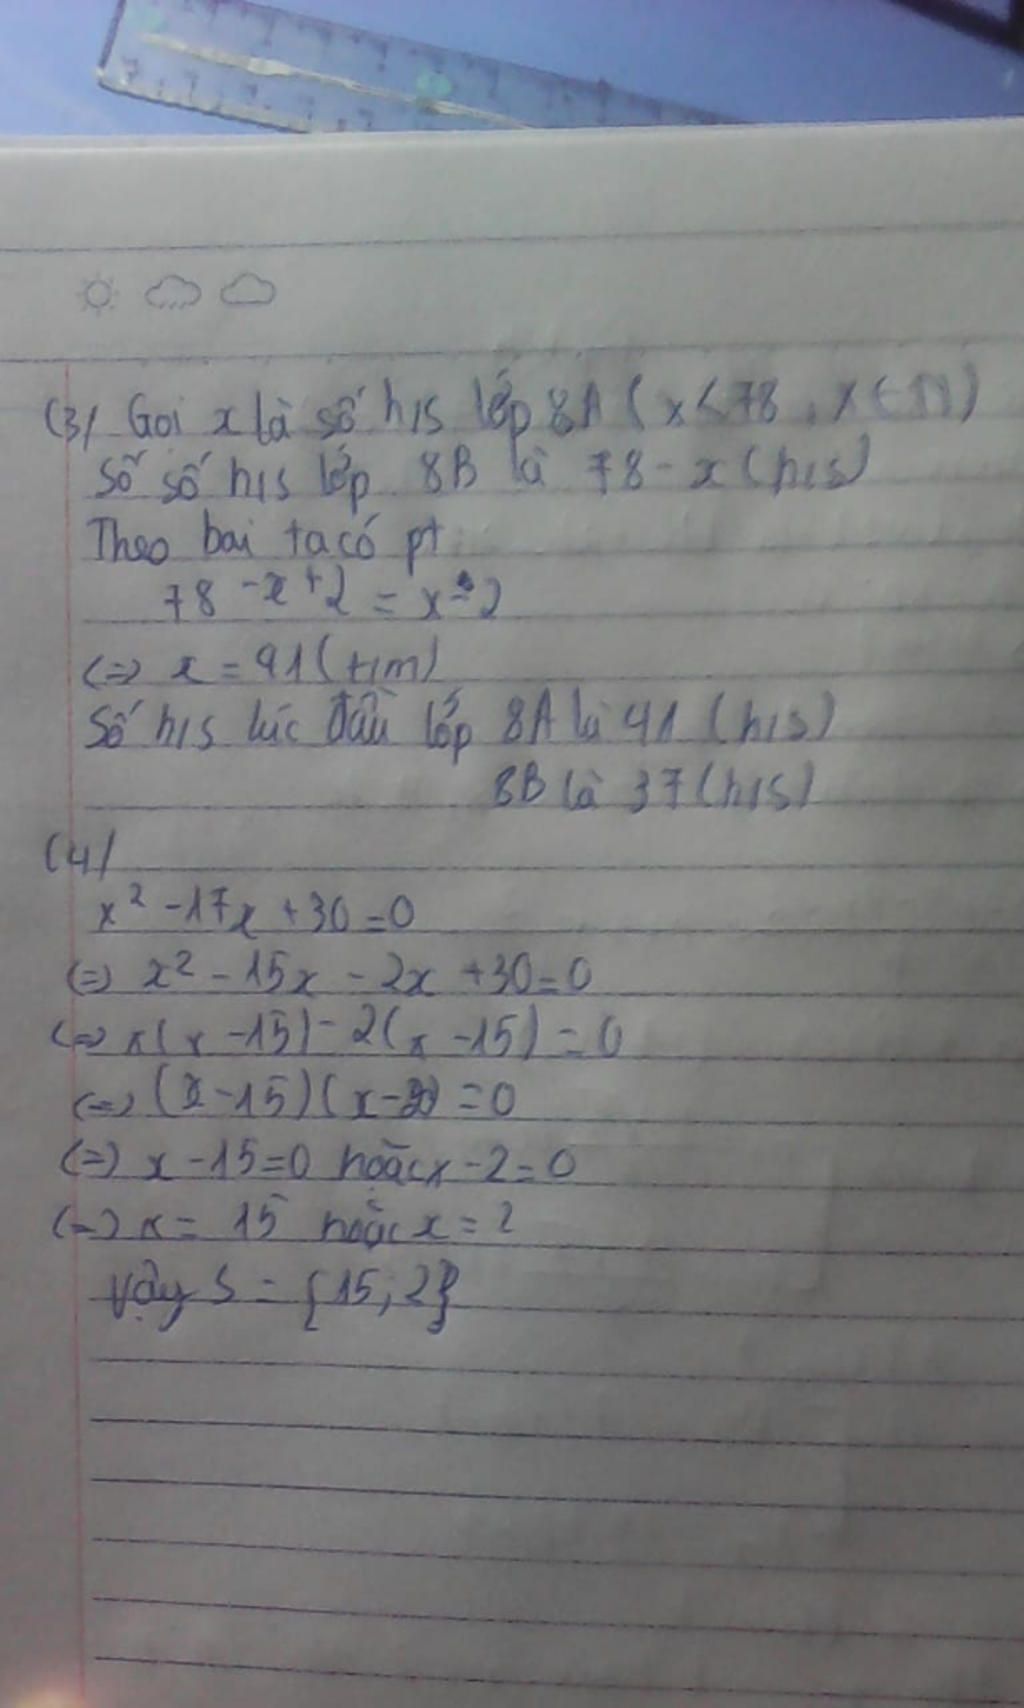 (3) Gọi x là số h/s lớp 8A (x < 78, x ∈ N)
Số số h/s lớp 8B là 78 - x (h/s)
Theo bai ta có pt
78 - x + 2 = x - 2
<=> x = 41 (t/m)
Số h/s lúc đầu lớp 8A là 41 (h/s)
8B là 37 (h/s)
(4)
x² - 17x + 30 = 0
<=> x² - 15x - 2x + 30 = 0
<=> x(x - 15) - 2(x - 15) = 0
<=> (x - 15)(x - 2) = 0
<=> x - 15 = 0 hoặc x - 2 = 0
<=> x = 15 hoặc x = 2
Vậy S = {15; 2}